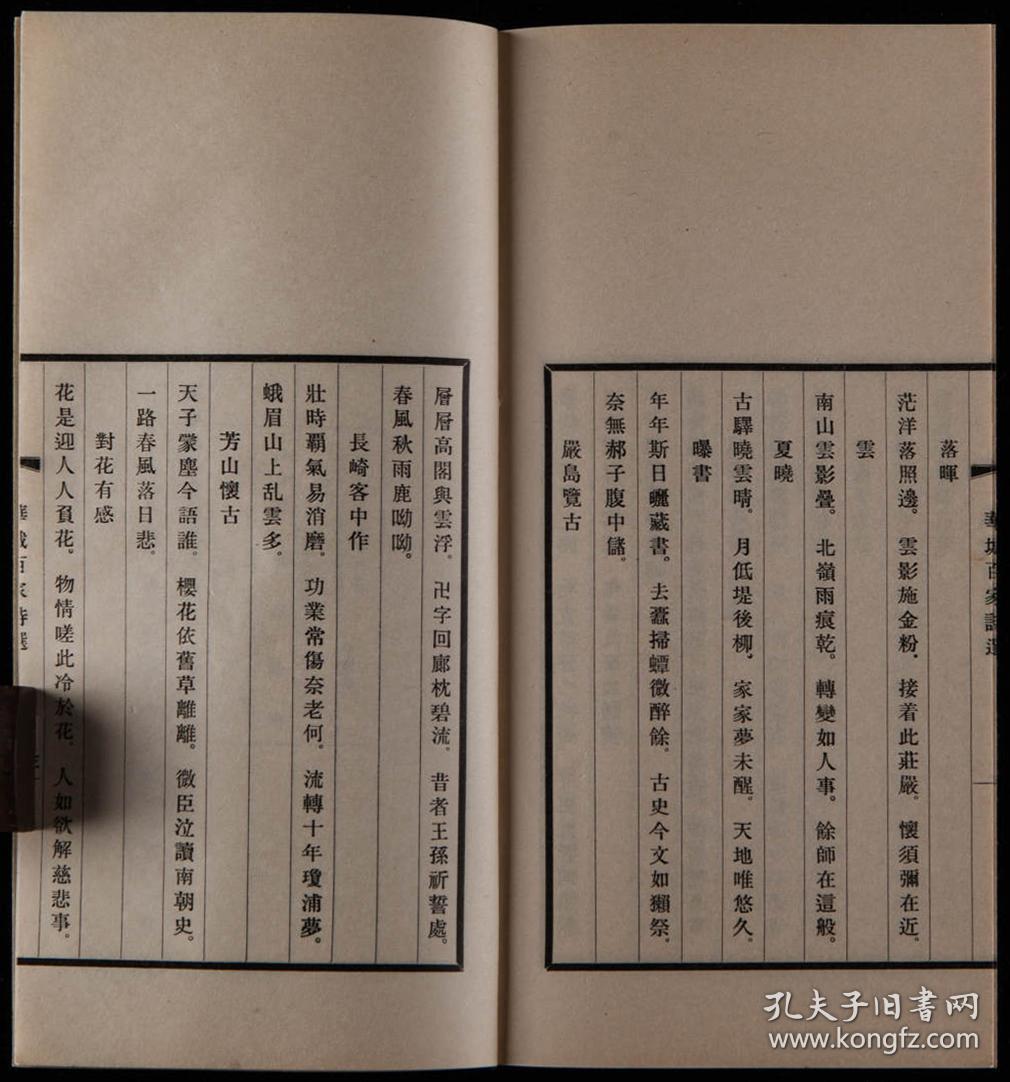 華城百家詩選
落暉
茫洋落照邊。雲影施金粉。接着此莊嚴。懷須彌在近。
雲
南山雲影疊。北嶺雨痕乾。轉變如人事。餘師在這般。
夏曉
古驛曉雲晴。月低堤後柳。家家夢未醒。天地唯悠久。
曝書
年年斯日曬藏書。去蠹掃蟫微醉餘。古史今文如獺祭。
奈無郝子腹中儲。
嚴島覽古
層層高閣與雲浮。卍字回廊枕碧流。昔者王孫祈誓處。
春風秋雨鹿呦呦。
長崎客中作
壯時覇氣易消磨。功業常傷奈老何。流轉十年瓊浦夢。
蛾眉山上乱雲多。
芳山懷古
天子蒙塵今語誰。櫻花依舊草離離。微臣泣讀南朝史。
一路春風落日悲。
對花有感
花是迎人人負花。物情嗟此冷於花。人如欲解慈悲事。
華城百家詩選
孔夫子旧书网
www.kongfz.com